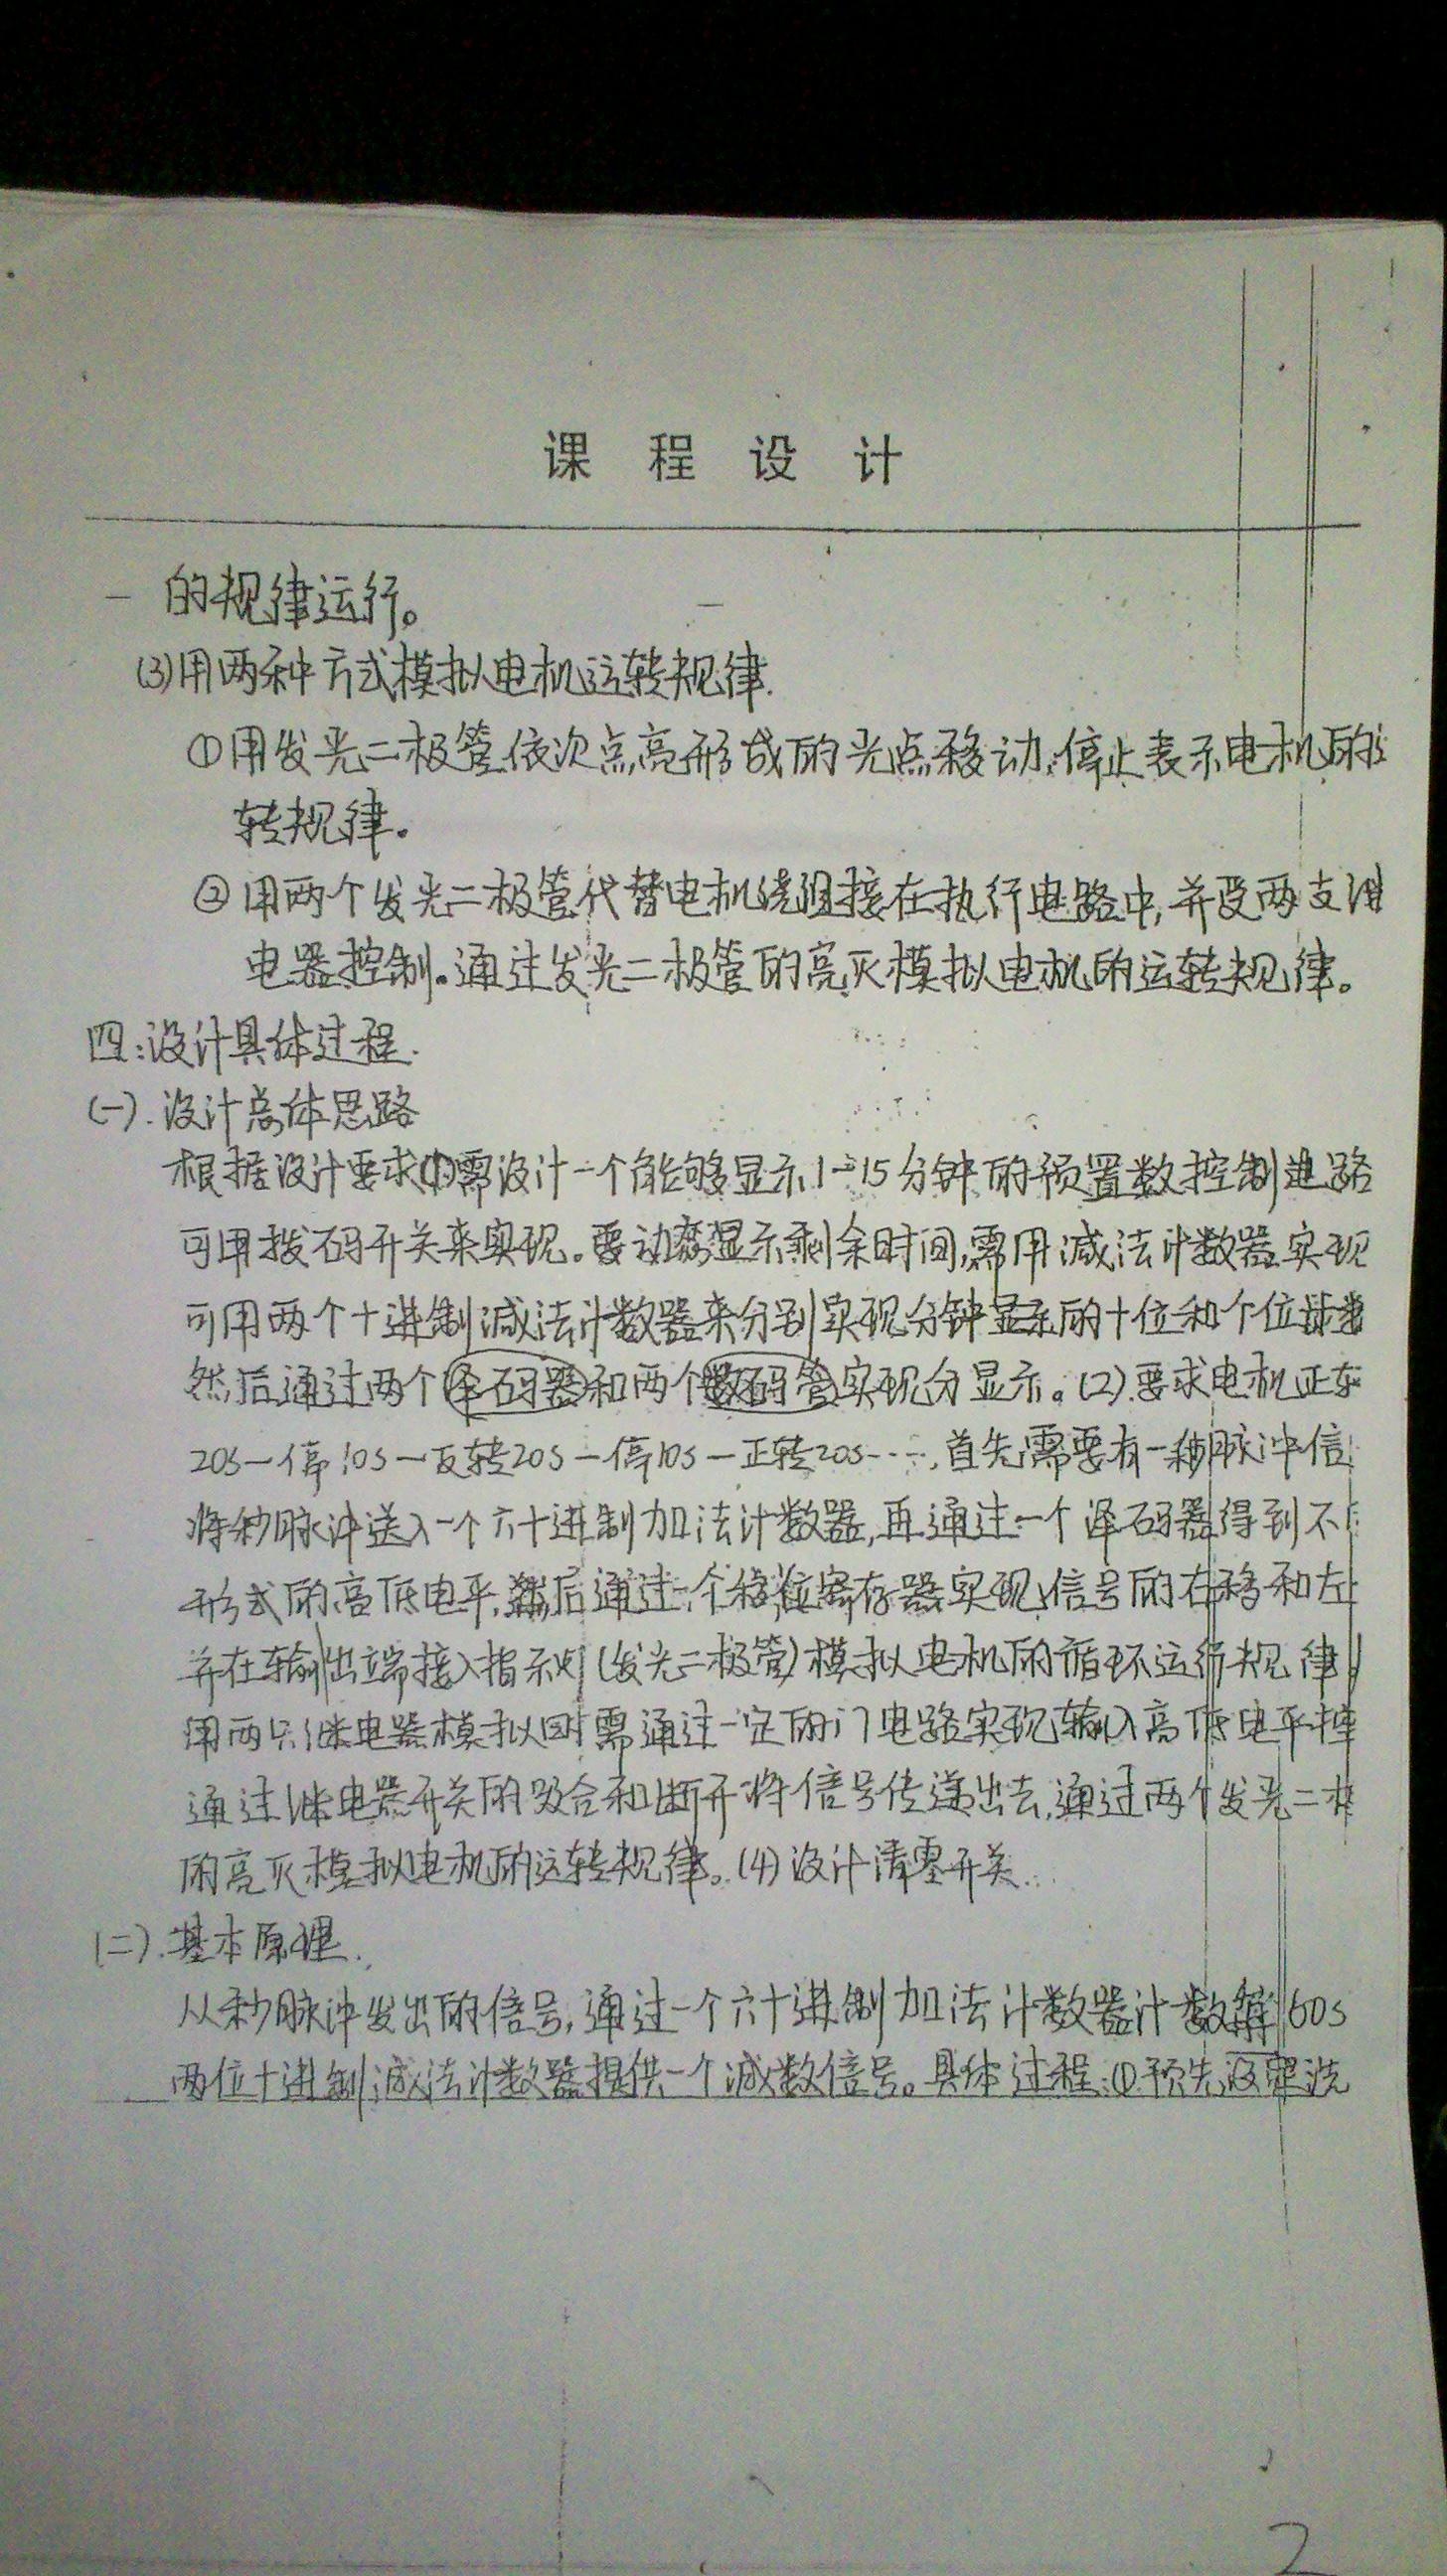 课程设计
的规律运行。
(3)用两种方式模拟电机运转规律
①用发光二极管依次点亮形成的光点移动,停止表示电机的运
转规律。
②用两个发光二极管代替电机绕组接在执行电路中,并受两支继
电器控制。通过发光二极管的亮灭模拟电机的运转规律。
四:设计具体过程.
(一).设计总体思路
根据设计要求(1)需设计一个能够显示1-15分钟的预置数控制电路
可用拨码开关来实现。要动态显示剩余时间,需用减法计数器实现
可用两个十进制减法计数器来分别实现分钟显示的十位和个位
然后通过两个译码器和两个数码管实现分显示。(2)要求电机正转
20s—停10s—反转20s—停10s—正转20s……首先需要有一秒脉冲信
将秒脉冲送入一个六十进制加法计数器,再通过一个译码器得到不
形式的高低电平,然后通过一个移位寄存器实现信号的右移和左
并在输出端接入指示列(发光二极管)模拟电机的循环运行规律。
用两只继电器模拟因需通过一定的门电路实现输入高低电平控
通过继电器开关的吸合和断开将信号传送出去,通过两个发光二极
的亮灭模拟电机的运转规律。(4)设计清零开关.
(二).基本原理:
从秒脉冲发出的信号,通过一个六十进制加法计数器计数每60s
两位十进制减法计数器提供一个减数信号。具体过程:①预先设置洗